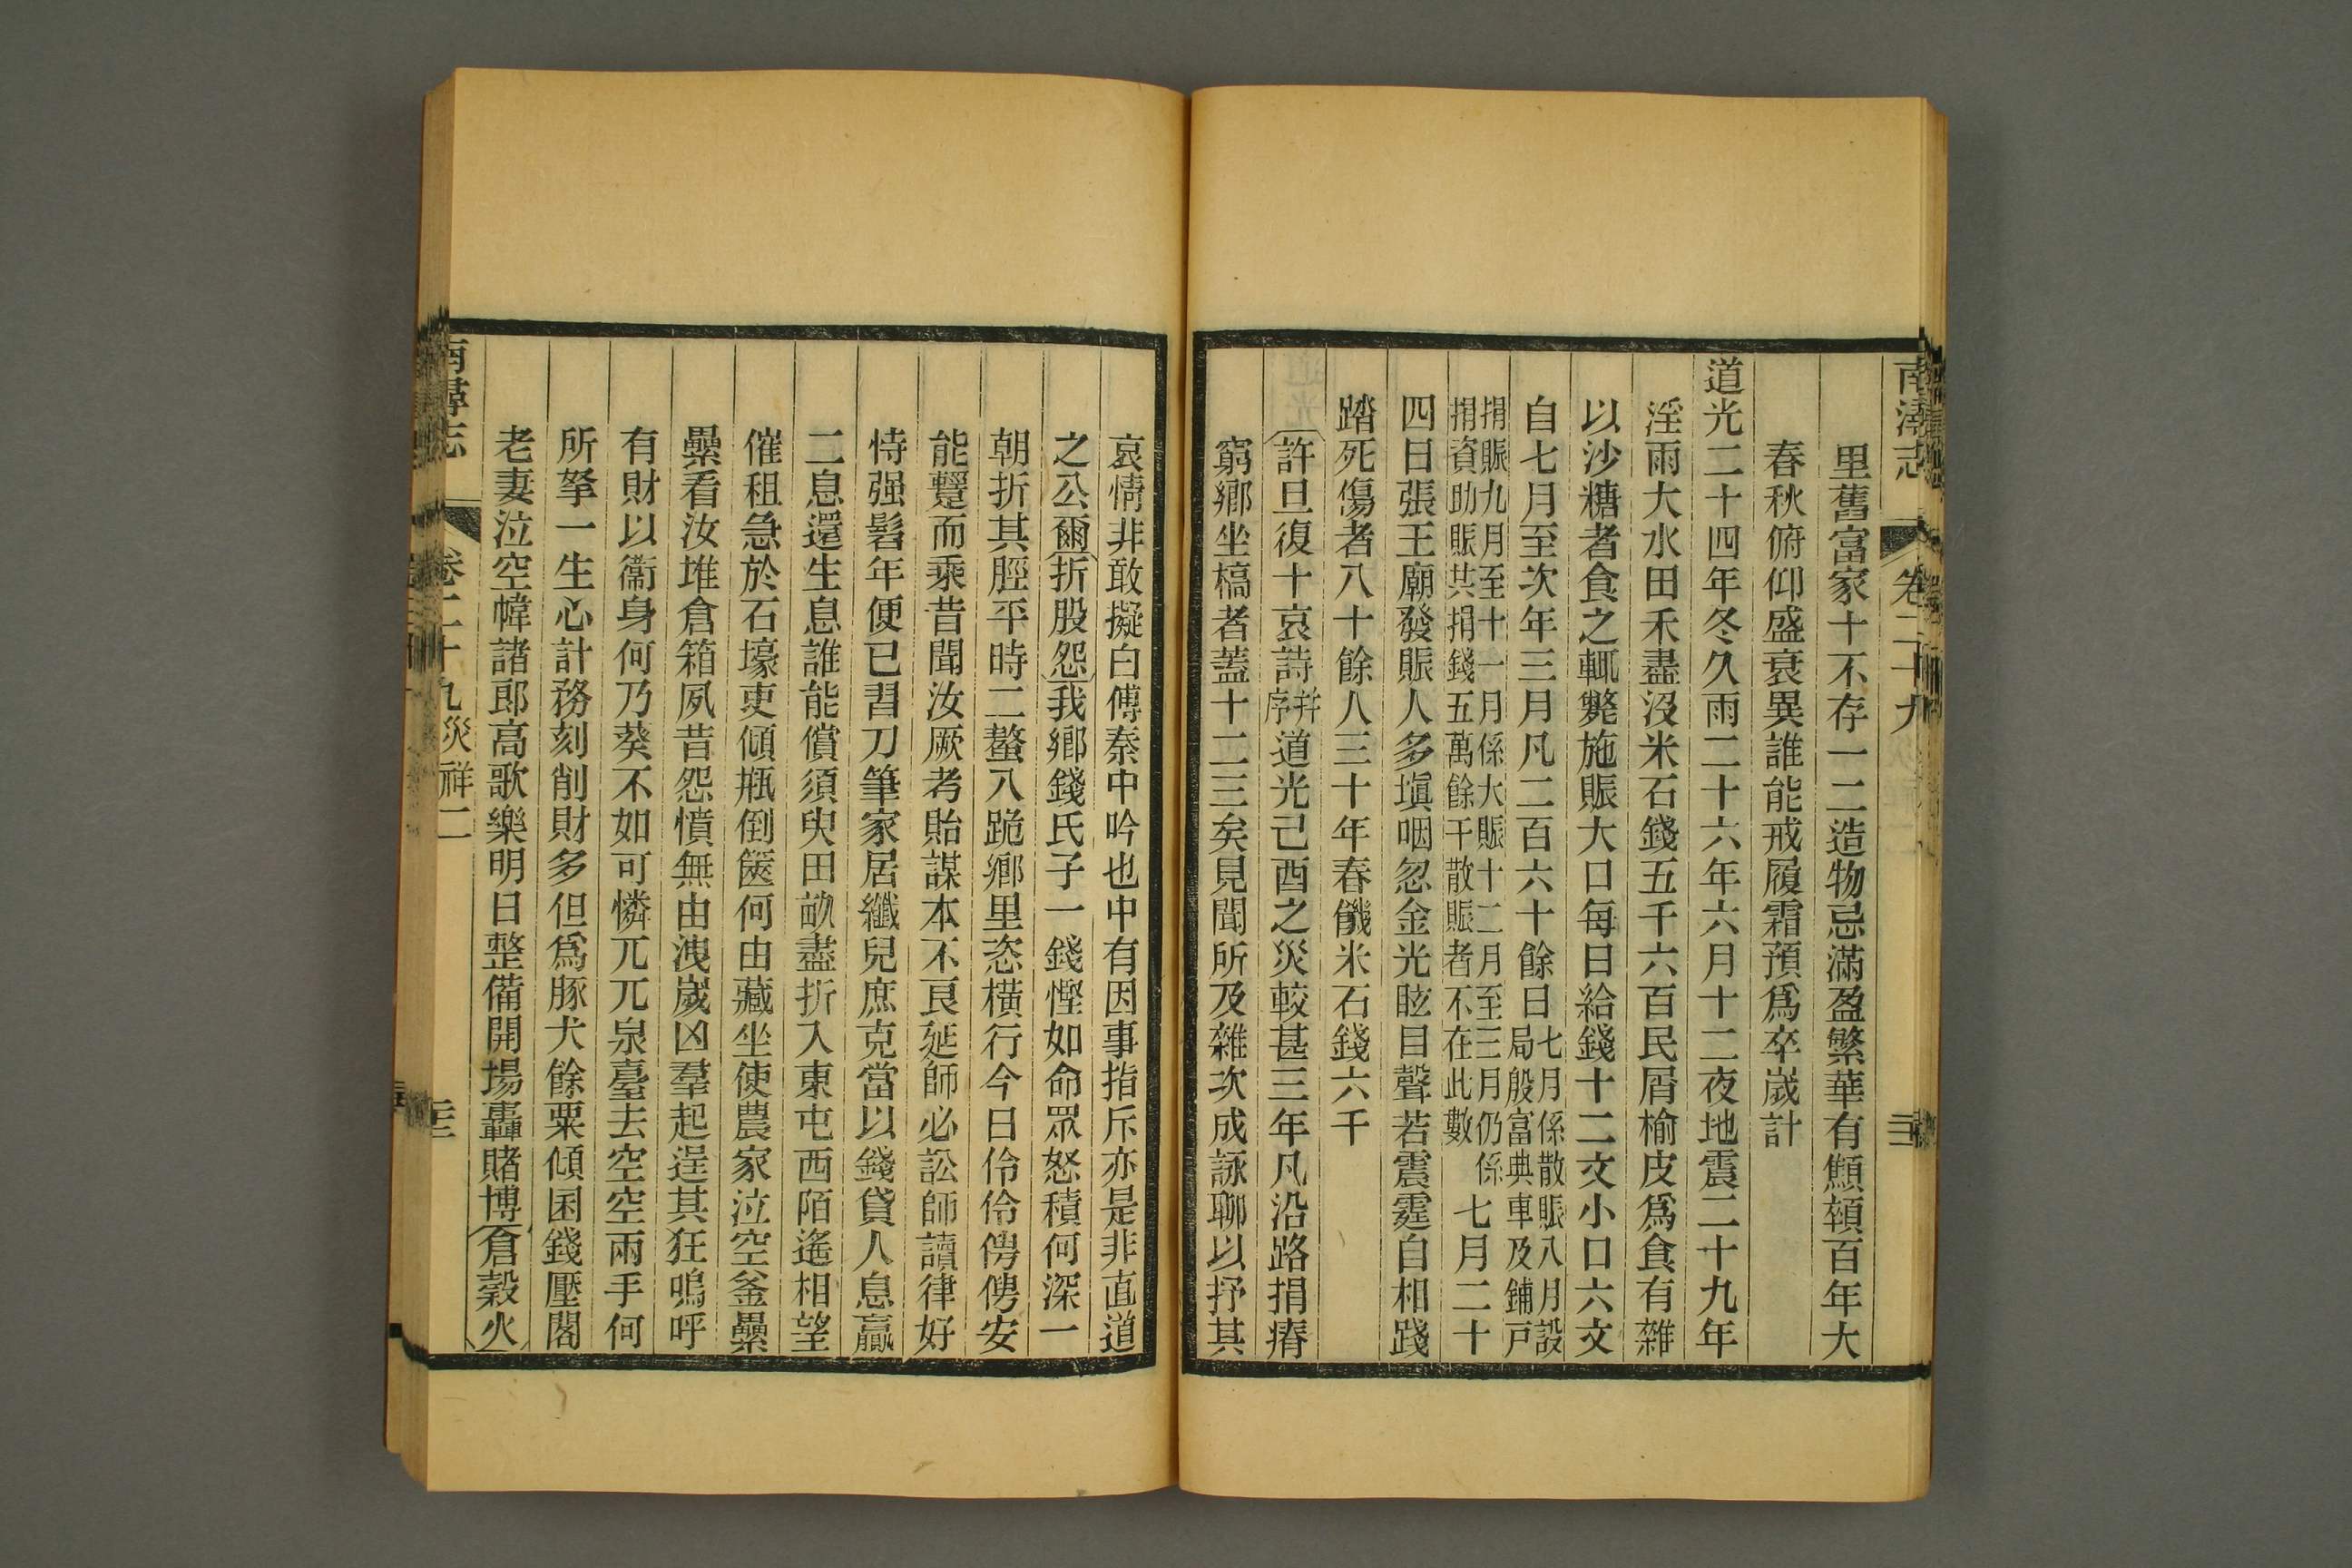 南潯志
卷二十九
里舊富家十不存一二造物忌滿盈繁華有顦顇百年大
春秋俯仰盛衰異誰能戒履霜預爲卒嵗計
道光二十四年冬久雨二十六年六月十二夜地震二十九年
淫雨大水田禾盡沒米石錢五千六百民屑榆皮爲食有雜
以沙糖者食之輒斃施賑大口每日給錢十二文小口六文
自七月至次年三月凡二百六十餘日七月係散賑八月設
局殷富典車及鋪戸
捐賑九月至十一月係大賑十二月至三月仍係
捐資助賑共捐錢五萬餘千散賑者不在此數七月二十
四日張王廟發賑人多塡咽忽金光眩目聲若震霆自相踐
踏死傷者八十餘人三十年春饑米石錢六千
許旦復十哀詩并序道光己酉之災較甚三年凡沿路捐瘠
窮鄕坐槁者蓋十二三矣見聞所及雜次成詠聊以抒其
哀情非敢擬白傅秦中吟也中有因事指斥亦是非直道
之公爾折股怨我鄕錢氏子一錢慳如命眾怒積何深一
朝折其脛平時二螯八跪鄕里恣橫行今日伶伶俜俜安
能躄而乘昔聞汝厥考貽謀本不良延師必訟師讀律好
恃强髫年便已習刀筆家居纖兒庶克當以錢貸人息贏
二息還生息誰能償須臾田畝盡折入東屯西陌遙相望
催租急於石壕吏傾瓶倒篋何由藏坐使農家泣空釜纍
纍看汝堆倉箱夙昔怨憤無由洩嵗凶羣起逞其狂嗚呼
有財以衞身何乃葵不如可憐兀兀泉臺去空空兩手何
所拏一生心計務刻削財多但爲豚犬餘粟傾囷錢壓閣
老妻泣空幃諸郎高歌樂明日整備開場轟賭博倉穀火
南潯志
卷二十九災祥二